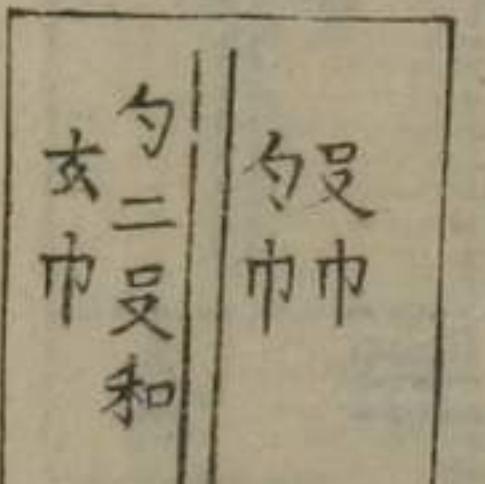 殳巾
勺巾
勺二殳和
玄巾